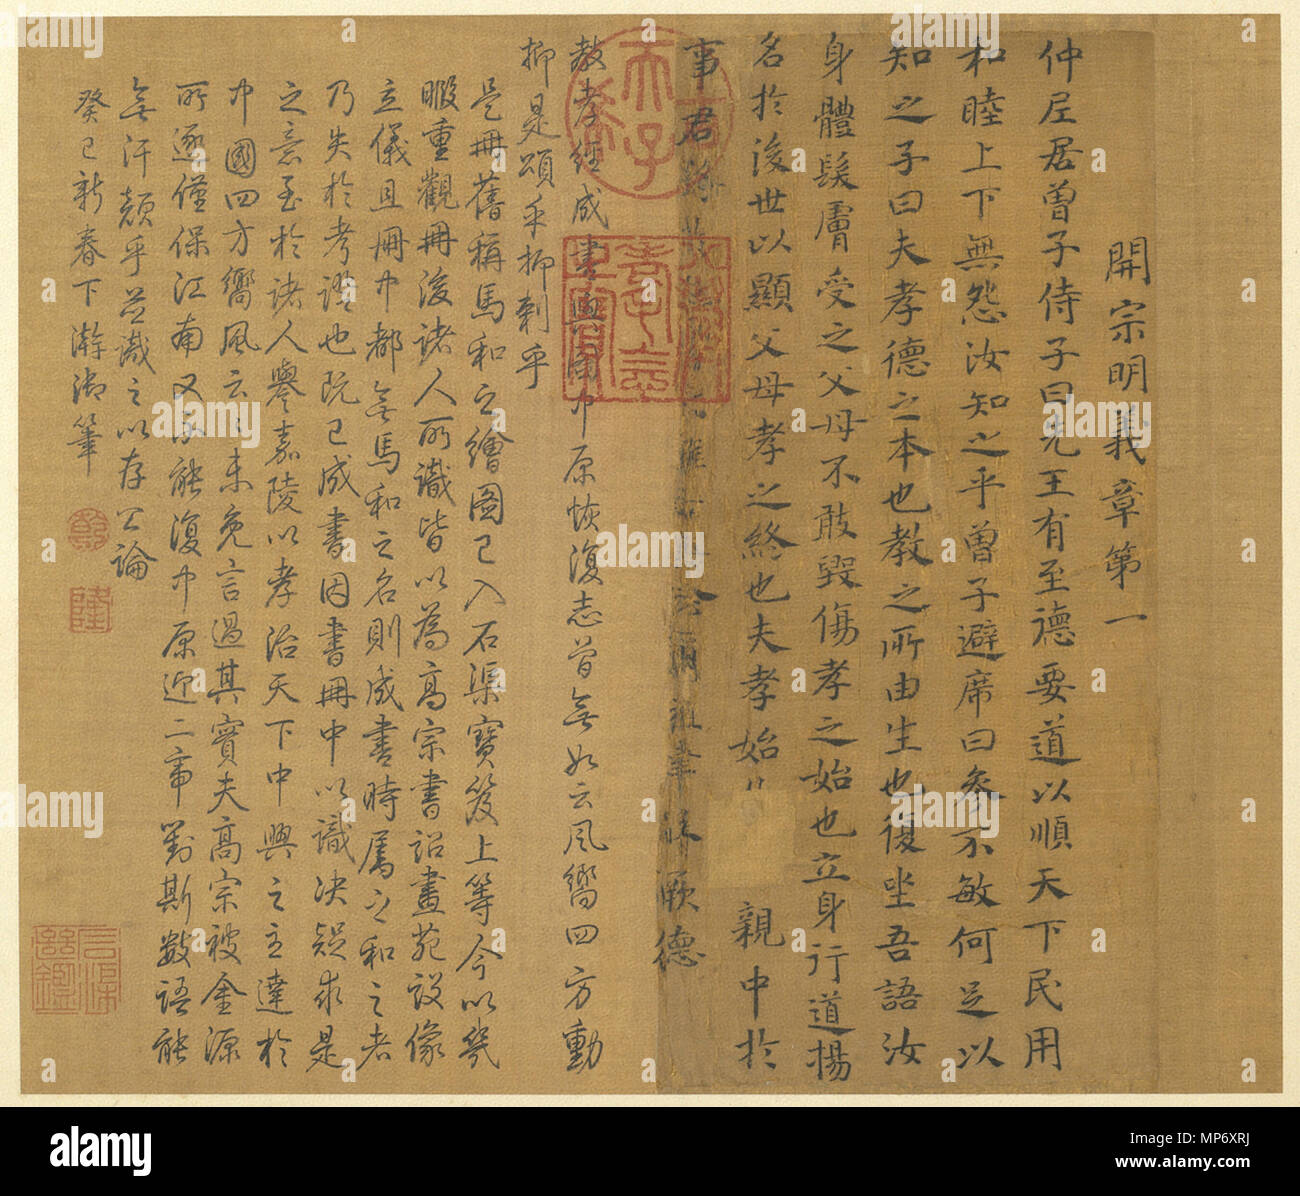 開宗明義章第一
仲尼居曾子侍子曰先王有至德要道以順天下民用
和睦上下無怨汝知之乎曾子避席曰參不敏何足以
知之子曰夫孝德之本也教之所由生也復坐吾語汝
身體髮膚受之父母不敢毀傷孝之始也立身行道揚
名於後世以顯父母孝之終也夫孝始 親中於
事君 聿脩厥德
教孝經成書與圖中原恢復志曾無如云風嚮四方動
抑是頌乎抑刺乎
是冊舊稱馬和之繪圖已入石渠寶笈上等今以幾
暇重觀冊後諸人所識皆以為高宗書詔畫苑設像
立儀且冊中都無馬和之名則成書時屬之和之者
乃失於考證也既已成書因書冊中以識決疑求是
之意至於諸人譽嘉陵以孝治天下中興之主達於
中國四方嚮風云云未免言過其實夫高宗被金源
所逐僅保江南又不能復中原近二帝對斯數語能
無汗顏乎並識之以存公論
癸巳新春下澣御筆
乾
隆
alamy
alamy
Image ID: MP6XRJ
www.alamy.com